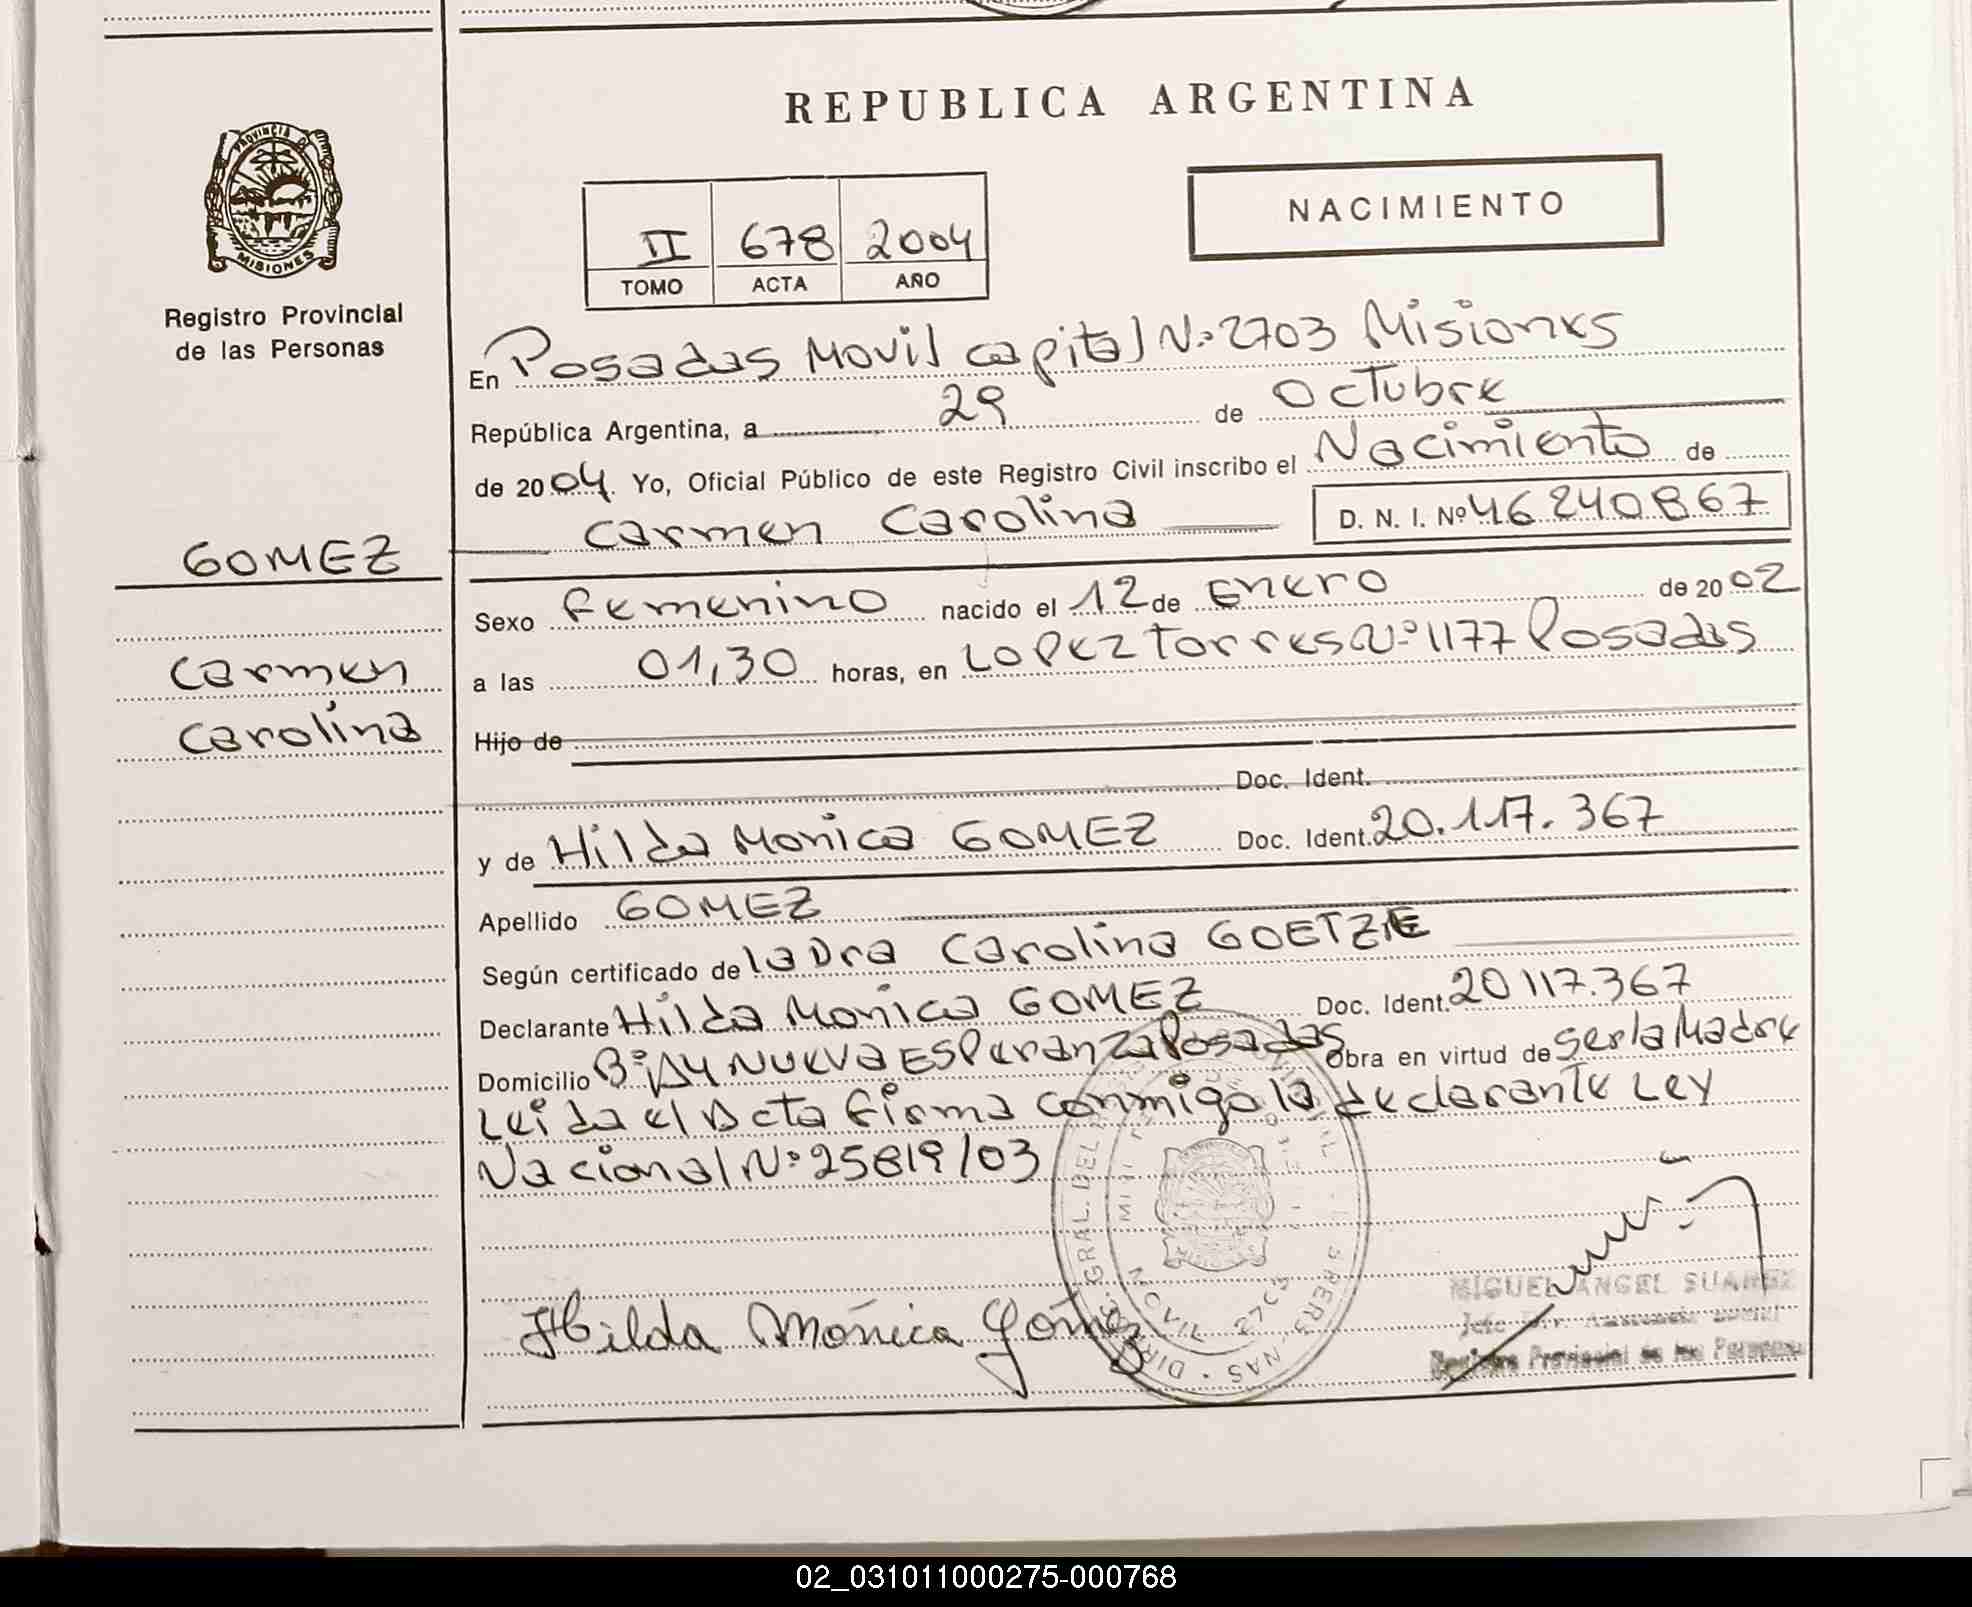 REPUBLICA ARGENTINA
PROVINCIA DE
MISIONES
Registro Provincial
de las Personas
NACIMIENTO
II 678 2004
TOMO ACTA AÑO
En Posadas Movil capital N.º 2703 Misiones
República Argentina, a 29 de Octubre
de 2004. Yo, Oficial Público de este Registro Civil inscribo el Nacimiento de
Carmen Carolina D. N. I. Nº 46240867
GOMEZ
Carmen
Carolina
Sexo Femenino nacido el 12 de Enero de 2002
a las 01,30 horas, en Lopez Torres Nº 1177 Posadas
Hijo de
Doc. Ident.
y de Hilda Monica GOMEZ Doc. Ident. 20.117.367
Apellido GOMEZ
Según certificado de la Dra Carolina GOETZE
Declarante Hilda Monica GOMEZ Doc. Ident. 20117.367
Domicilio Bº A4 Nueva Esperanza Posadas Obra en virtud de Ser la Madre
Leida el Acta firma conmigo la declarante Ley
Nacional Nº 25819/03
Hilda Mónica Gómez
GRAL. DEL
MOVIL 2703
MIGUEL ANGEL SUAREZ
Registro Provincial de las Personas
02_031011000275-000768